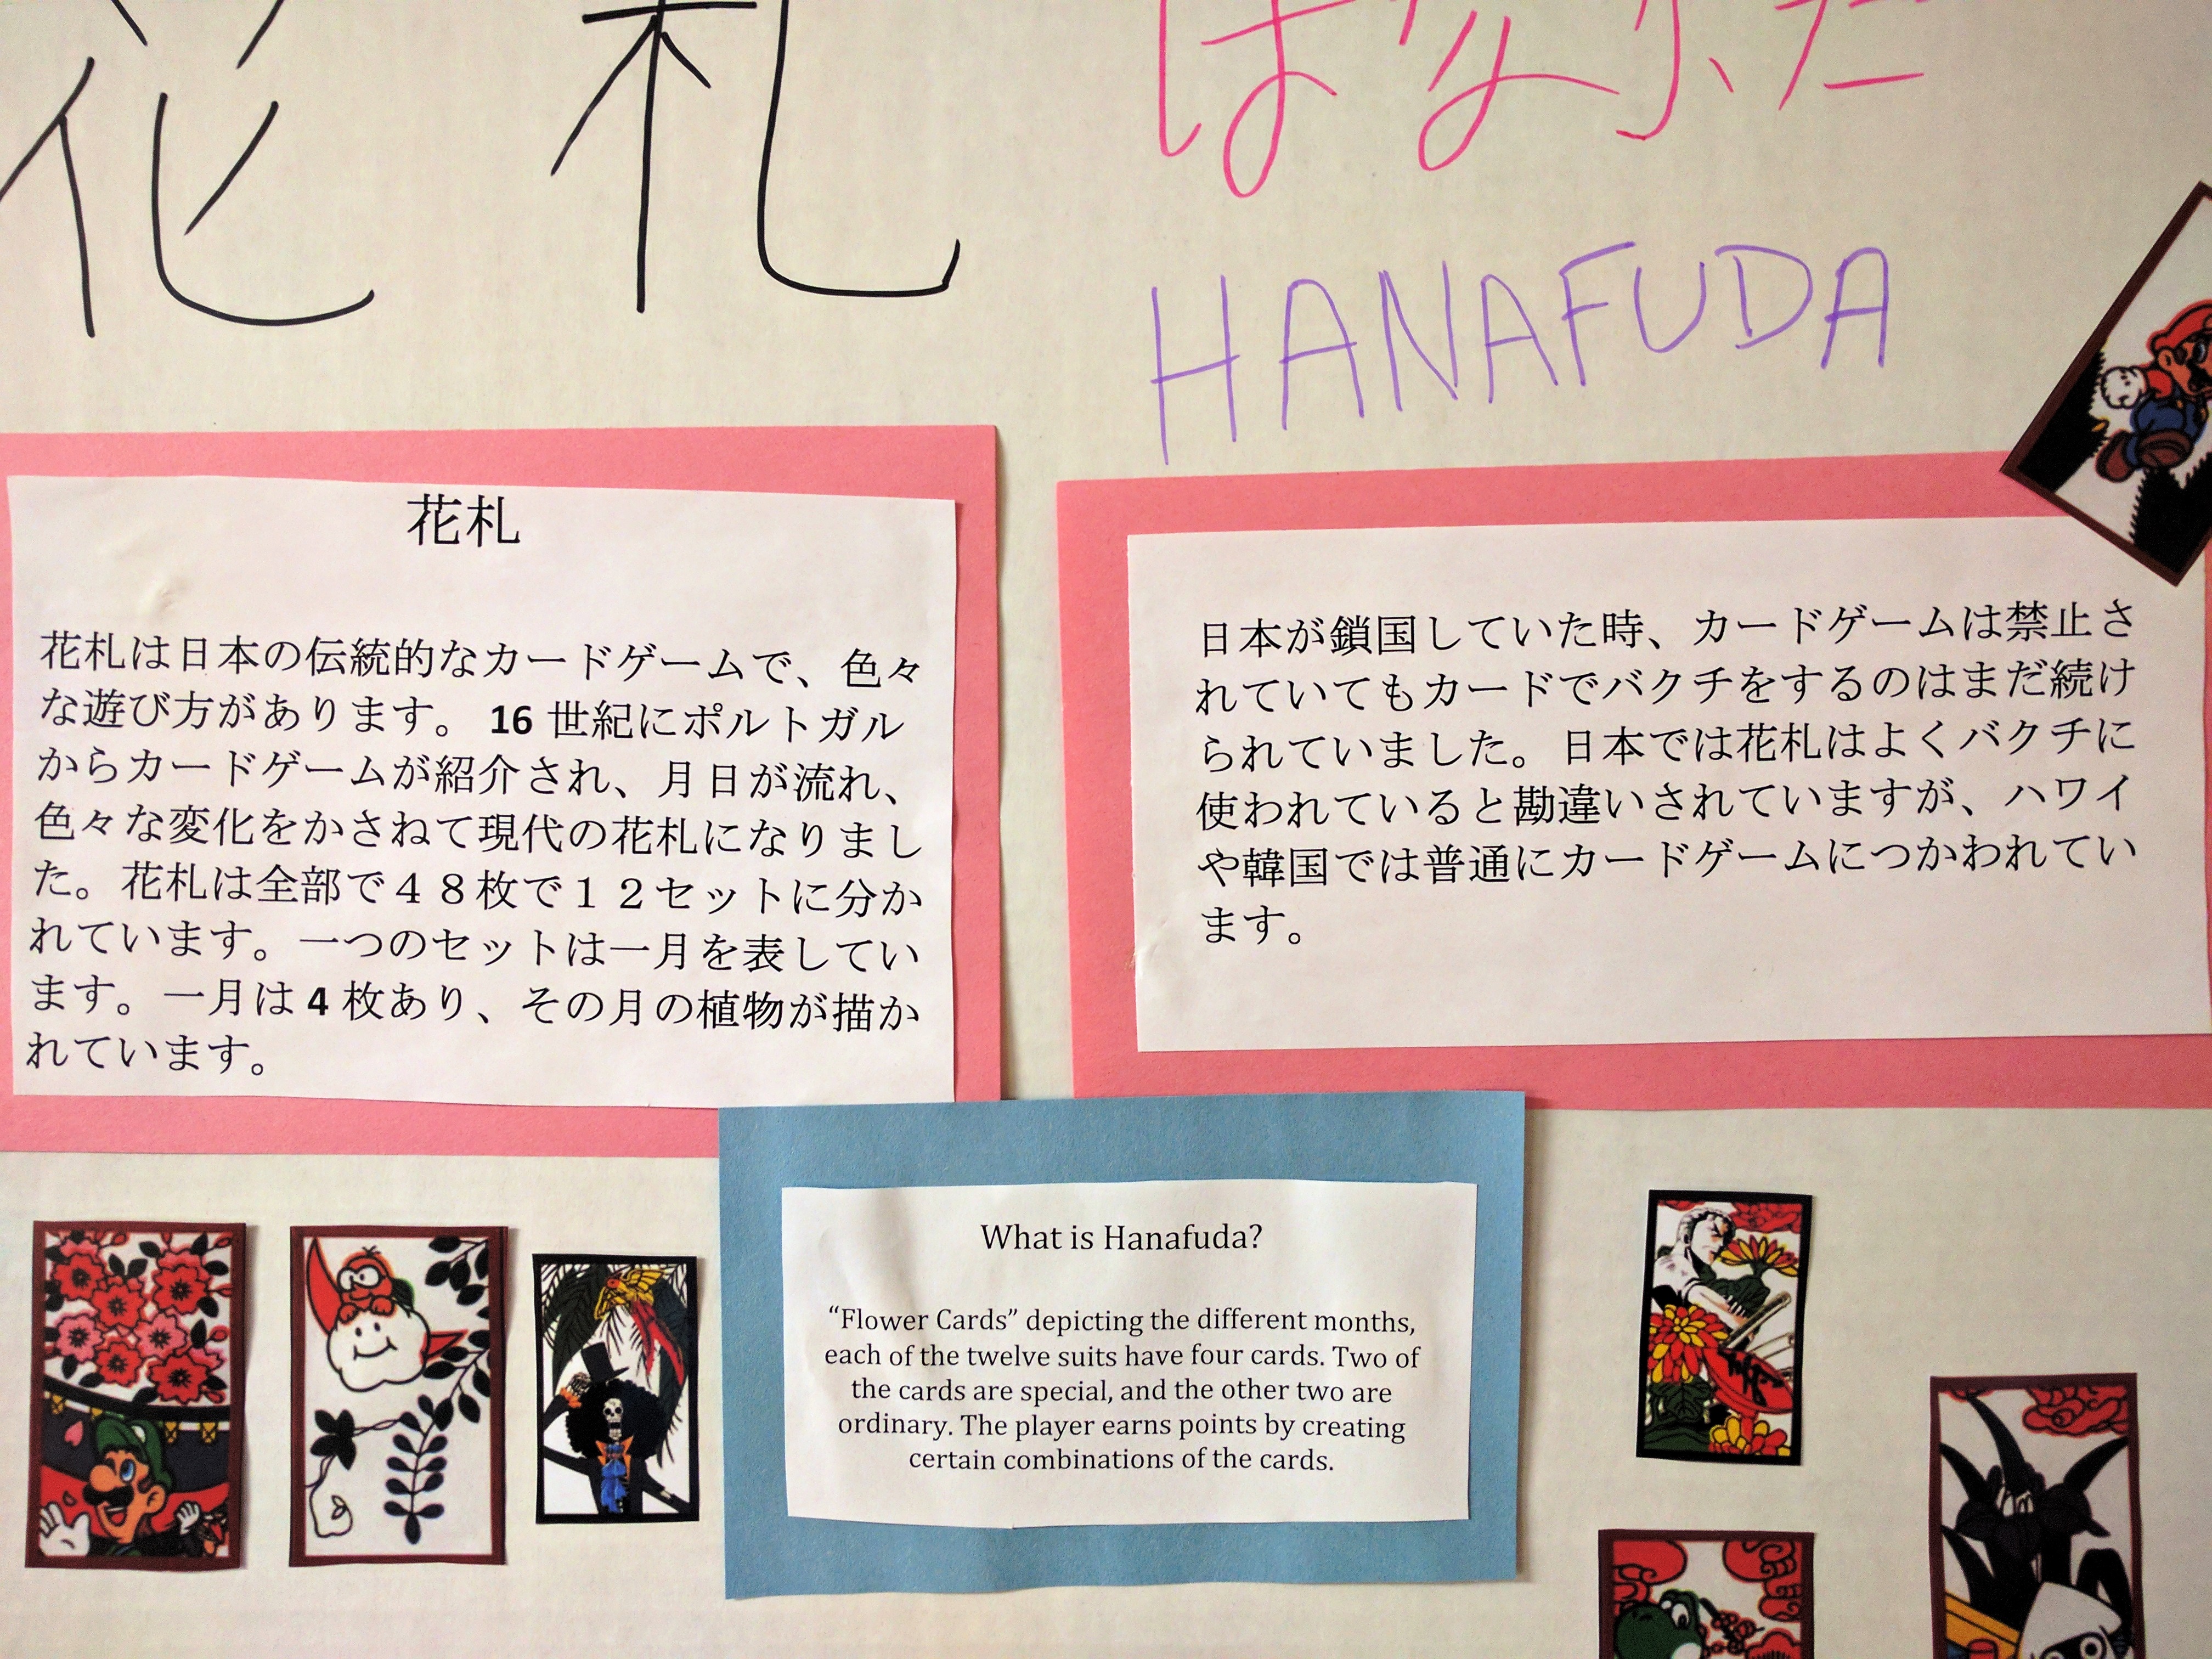 花札
はなふだ
HANAFUDA
花札
花札は日本の伝統的なカードゲームで、色々
な遊び方があります。16 世紀にポルトガル
からカードゲームが紹介され、月日が流れ、
色々な変化をかさねて現代の花札になりまし
た。花札は全部で４８枚で１２セットに分か
れています。一つのセットは一月を表してい
ます。一月は 4 枚あり、その月の植物が描か
れています。
日本が鎖国していた時、カードゲームは禁止さ
れていてもカードでバクチをするのはまだ続け
られていました。日本では花札はよくバクチに
使われていると勘違いされていますが、ハワイ
や韓国では普通にカードゲームにつかわれてい
ます。
What is Hanafuda?
“Flower Cards” depicting the different months,
each of the twelve suits have four cards. Two of
the cards are special, and the other two are
ordinary. The player earns points by creating
certain combinations of the cards.